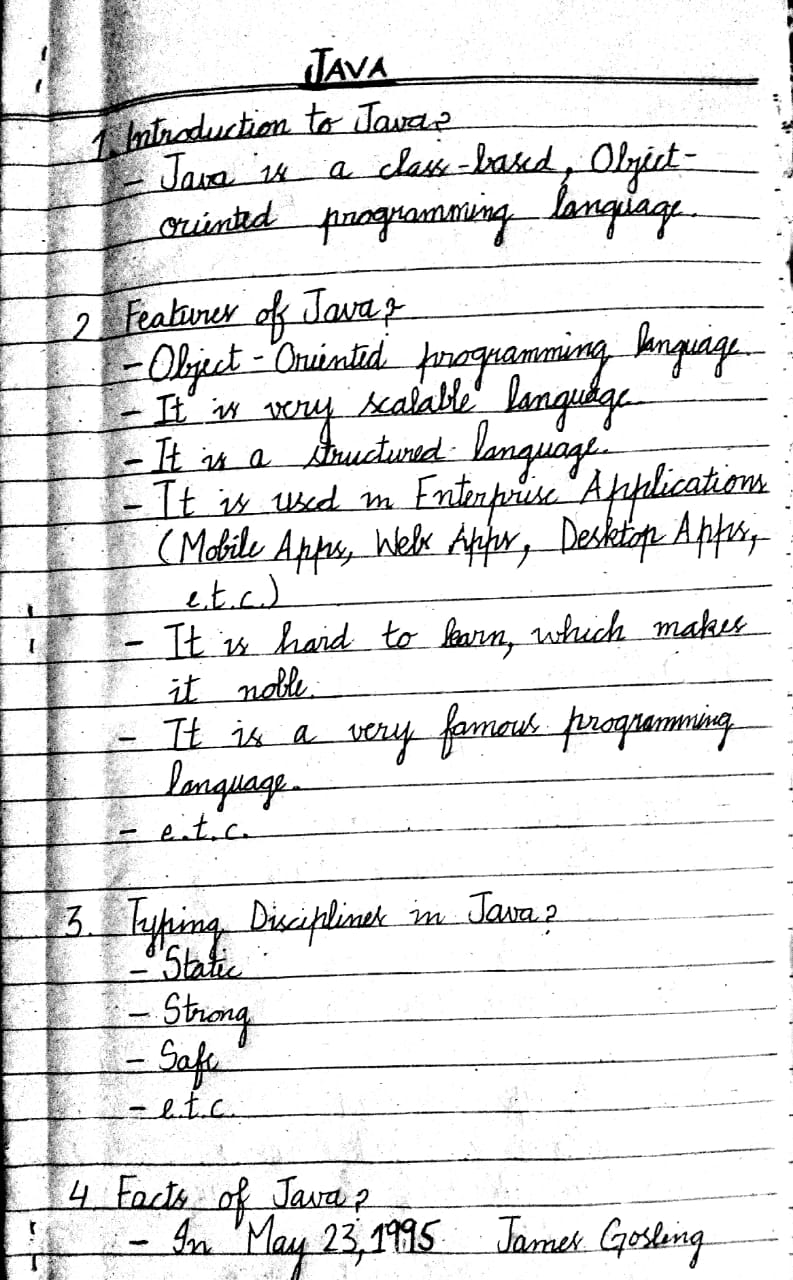 JAVA
1. Introduction to Java?
- Java is a class-based, Object-
oriented programming language.
2 Features of Java?
- Object-Oriented programming language.
- It is very scalable language
- It is a structured language.
- It is used in Enterprise Applications
(Mobile Apps, Web Apps, Desktop Apps,
e.t.c.)
- It is hard to learn, which makes
it noble.
- It is a very famous programming
language.
- e.t.c.
3. Typing Disciplines in Java?
- Static
- Strong
- Safe
- e.t.c.
4 Facts of Java?
- In May 23, 1995 James Gosling